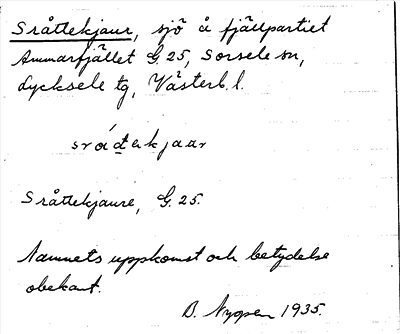 Sråttekjaur, sjö å fjällpartiet
Ammarfjället G. 25, Sorsele sn,
Lycksele tg, Västerb. l.
sråd̲ɛkjaar
Sråttekjaure, G. 25.
Namnets uppkomst och betydelse
obekant.
B. Nygren 1935.